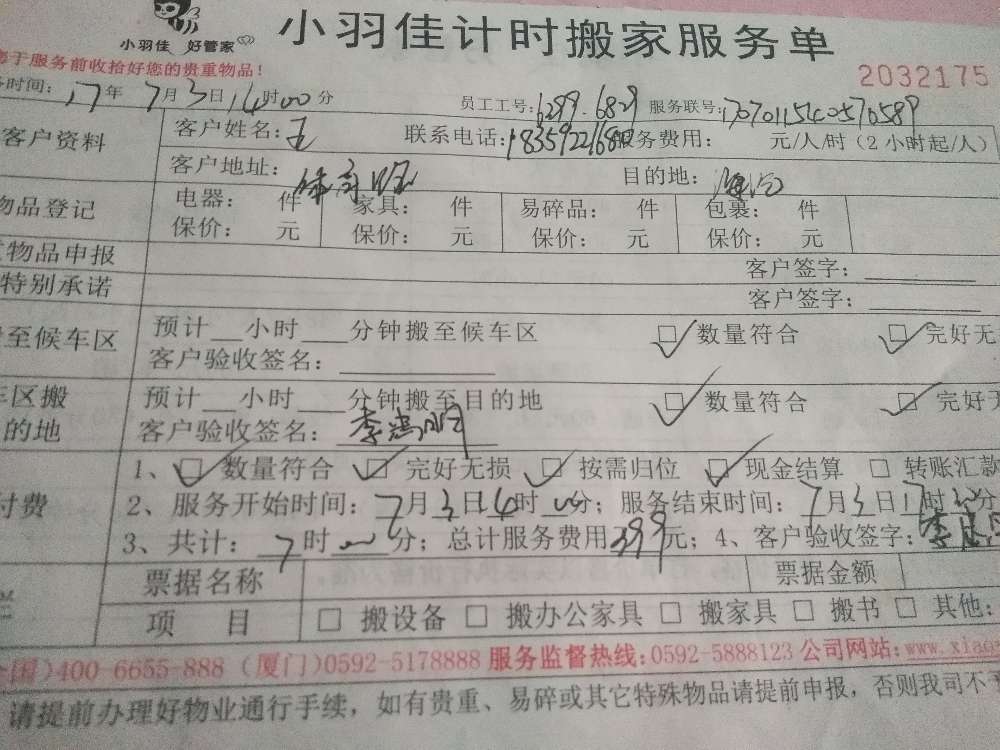 小羽佳 好管家
小羽佳计时搬家服务单
于服务前收拾好您的贵重物品！
2032175
时间：17年7月3日14时00分 员工工号：6299.6829 服务联号：
客户资料 客户姓名：王 联系电话： 服务费用： 元/人/时（2小时起/人）
客户地址： 目的地：
物品登记 电器： 件 家具： 件 易碎品： 件 包裹： 件
保价： 元 保价： 元 保价： 元 保价： 元
物品申报 客户签字：
特别承诺 客户签字：
至候车区 预计__小时____分钟搬至候车区 数量符合 完好无
客户验收签名：
区搬 预计__小时____分钟搬至目的地 数量符合 完好无
的地 客户验收签名：李
1、 数量符合 完好无损 按需归位 现金结算 转账汇款
付费 2、服务开始时间：7月3日14时00分；服务结束时间：7月3日17时分
3、共计：时分；总计服务费用399元；4、客户验收签字：李
票据名称 票据金额
项 目 搬设备 搬办公家具 搬家具 搬书 其他：
国)400-6655-888 (厦门)0592-5178888 服务监督热线：0592-5888123 公司网站：www.xiao
请提前办理好物业通行手续，如有贵重、易碎或其它特殊物品请提前申报，否则我司不